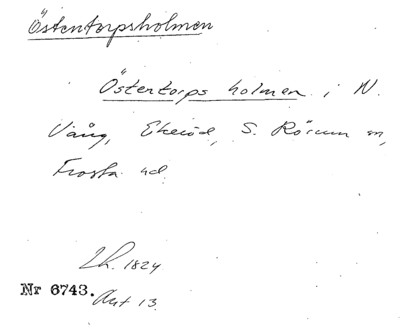 Östentorpsholmen
Östentorps holmen i N.
Vång, Ekeröd, S. Rörum sn,
Frosta hd
Lh. 1824
Nr 6743. Akt 13.